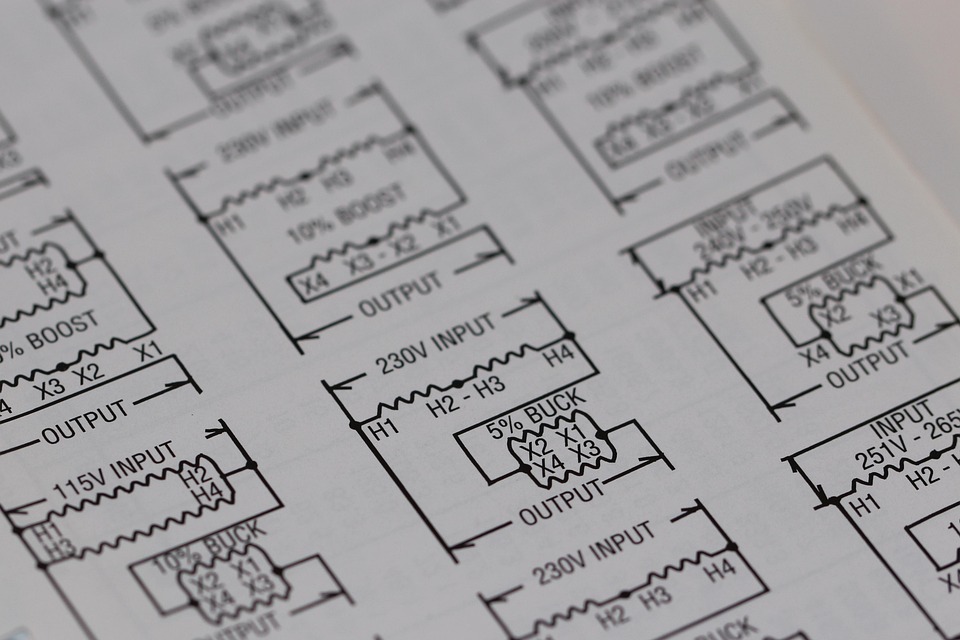 OUTPUT
230V INPUT
H1 H2 H3 H4
10% BOOST
X4 X3 - X2 X1
OUTPUT
INPUT
H1 H2 - H3
10% BOOST
X4 X3 - X2 X1
OUTPUT
H2
H4
BOOST
X3 X2 X1
OUTPUT
230V INPUT
H1 H2 - H3 H4
5% BUCK
X2 X1
X4 X3
OUTPUT
INPUT
240V - 250V
H1 H2 - H3 H4
5% BUCK
X2 X3 X1
X4
OUTPUT
115V INPUT
H1 H2
H3 H4
10% BUCK
X2 X1
X4 X3
OUTPUT
230V INPUT
H2 H3 H4
BUCK
INPUT
251V - 265V
H1 H2 -